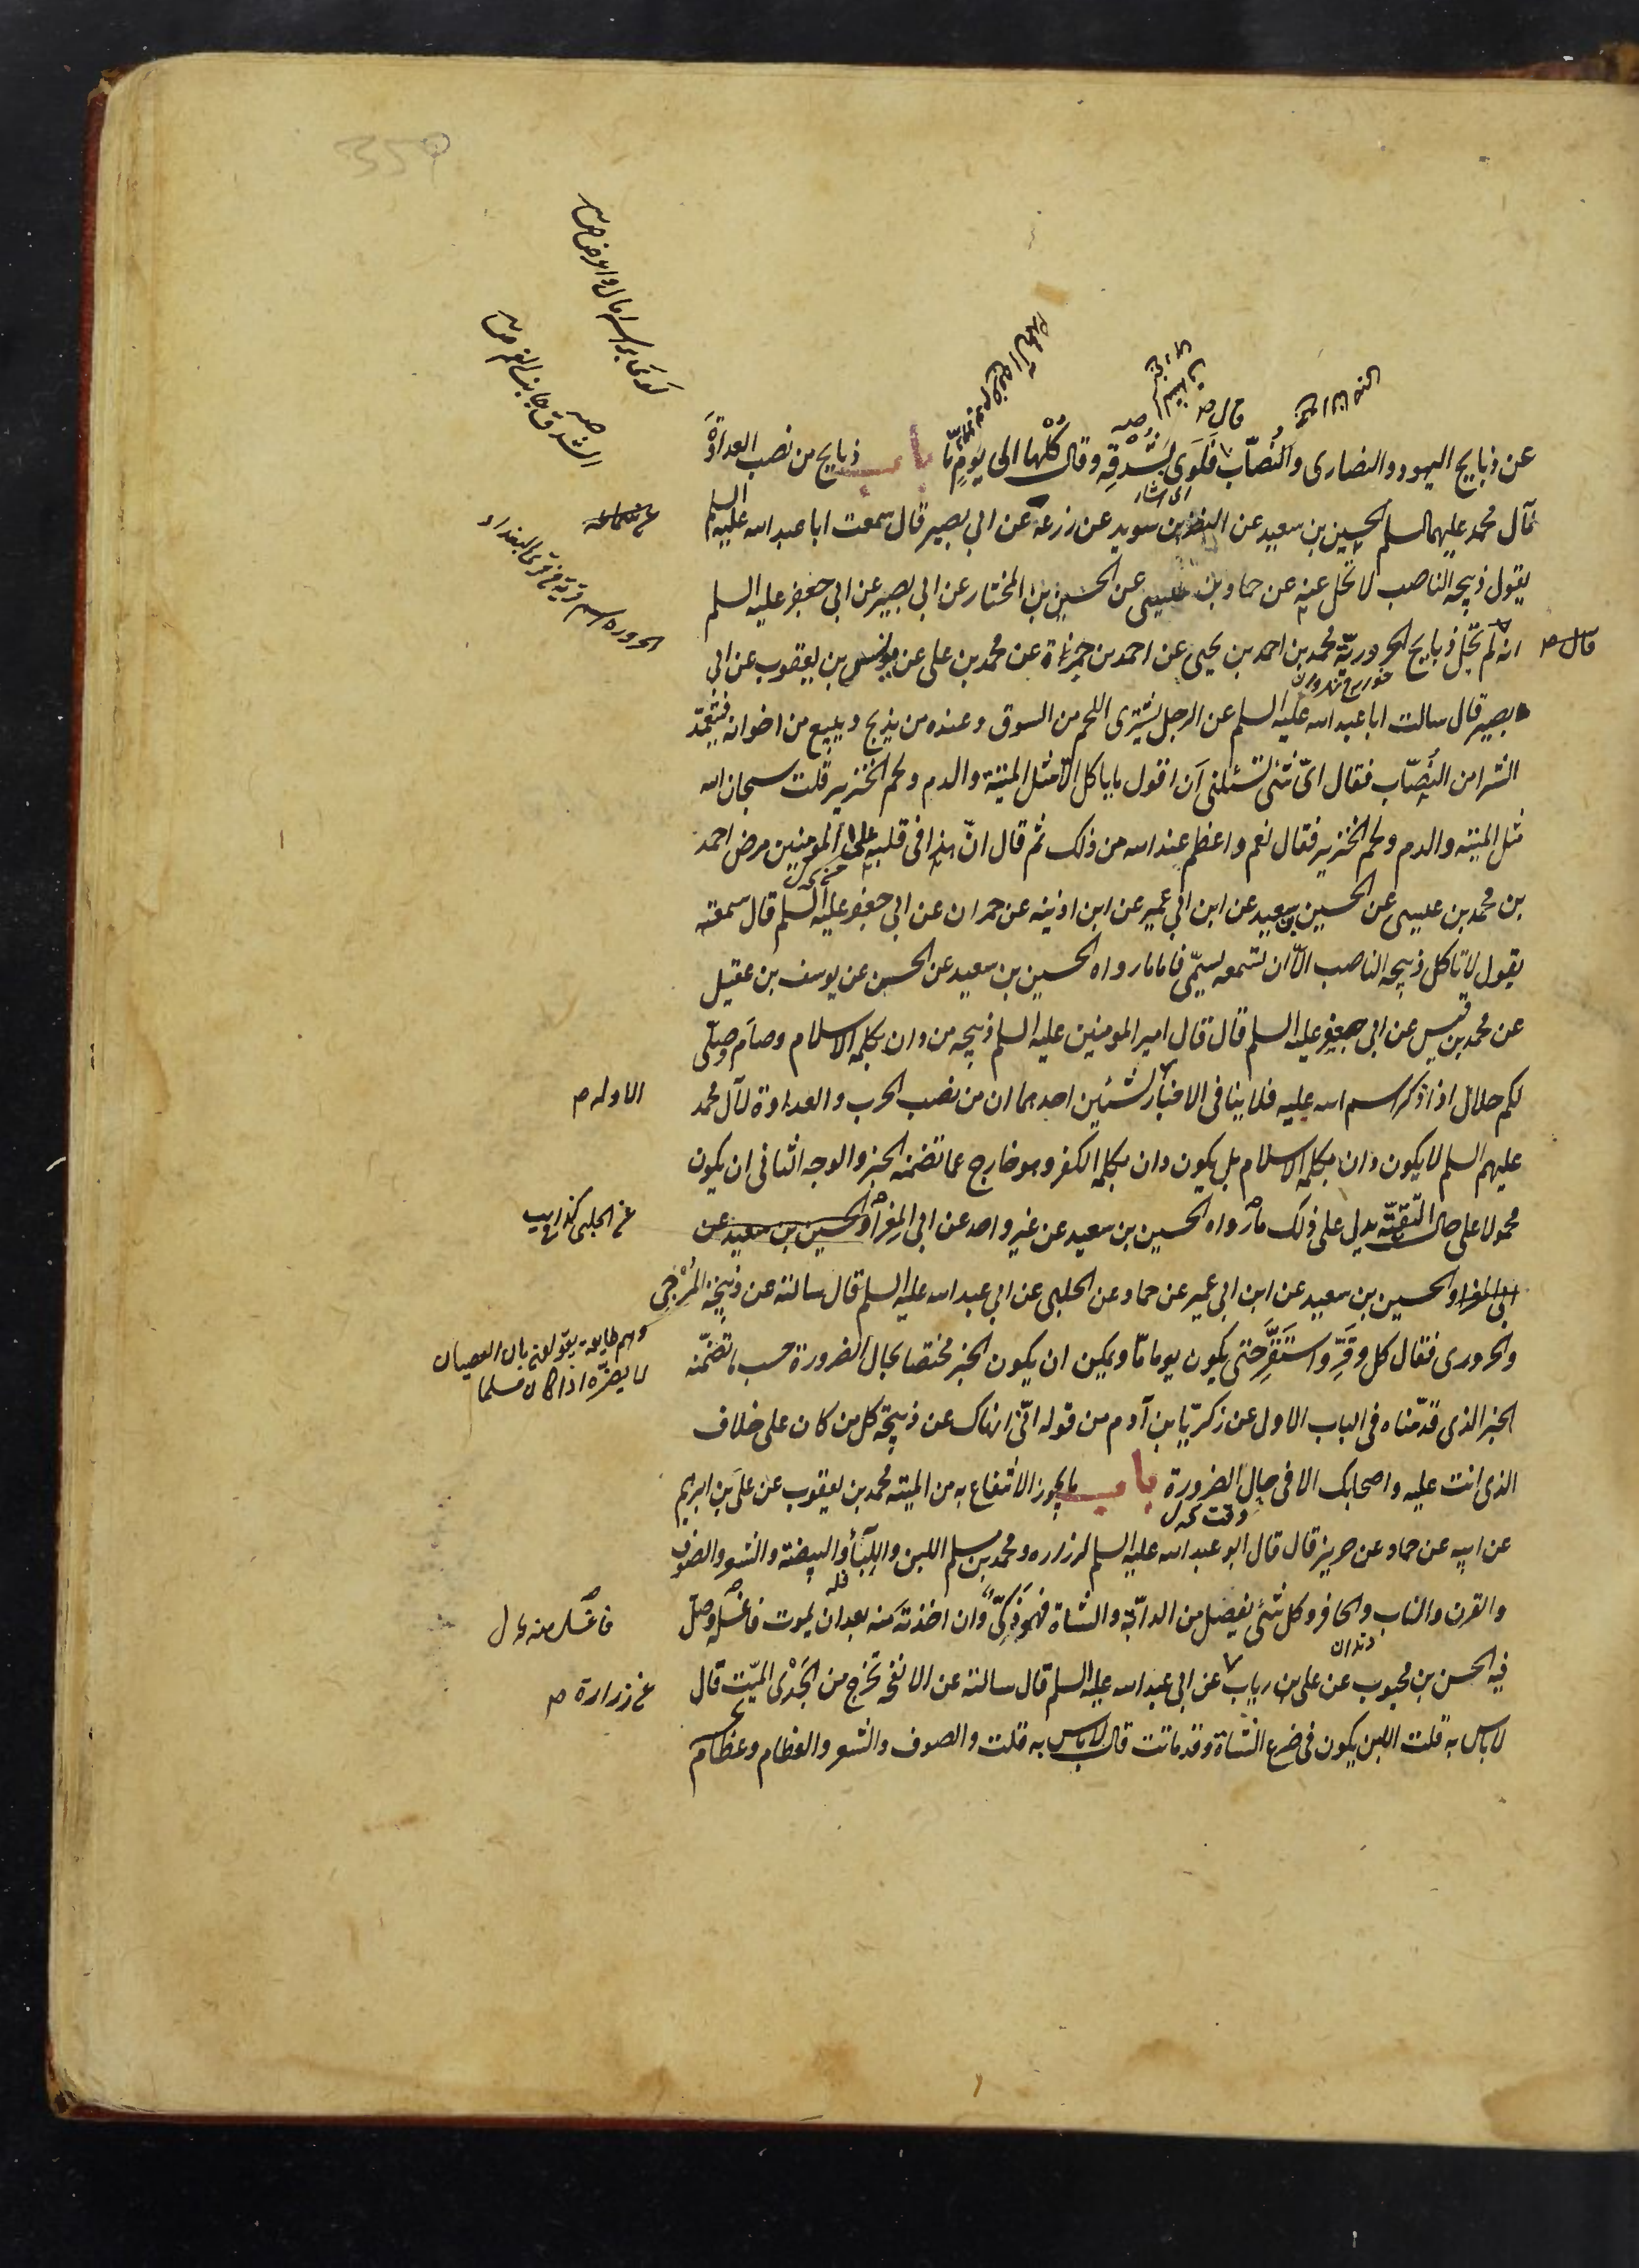 359
لوى براسه امال واعرض ص
الشدق جانب الفم ص
قال م
عن ذبايح اليهود والنصارى والنُصّاب فَلَوى شِدْقه وقال كُلْها الى يومٍ مّا باب ذبايح من نصب العداوة
اى اشار
لآل محمد عليهم السلم الحسين بن سعيد عن النضر بن سويد عن زرعة عن ابي بصير قال سمعت ابا عبد الله عليه السلم
يقول ذبيحة الناصب لا تحل عنه عن حماد بن عيسى عن الحسين بن المختار عن ابي بصير عن ابي جعفر عليه السلم
الحرورة اسم قرية من قرى البغداد
قال م
انه لم تحل ذبايح الحرورية محمد بن احمد بن يحيى عن احمد بن حمزة عن محمد بن علي عن يونس بن يعقوب عن ابي
بصير قال سالت ابا عبد الله عليه السلم عن الرجل يشترى اللحم من السوق وعنده من يذبح ويبيع من اخوانه فيتعمّد
الشرا من النُصّاب فقال اىّ شئ تسئلنى اَن اقول ما ياكل الّا مثل الميتة والدم ولحم الخنزير قلت سبحان الله
مثل الميتة والدم ولحم الخنزير فقال نعم واعظم عند الله من ذلك ثم قال انّ هذا في قلبه على المومنين مرض احمد
بن محمد بن عيسى عن الحسين بن سعيد عن ابن ابي عمير عن ابن اذينه عن حمران عن ابي جعفر عليه السلم قال سمعته
يقول لا تاكل ذبيحة الناصب الّا ان تسمعه يسمّى فاما ما رواه الحسين بن سعيد عن الحسن عن يوسف بن عقيل
عن محمد بن قيس عن ابي جعفر عليه السلم قال قال امير المومنين عليه السلم ذبيحة من دان بكلمة الاسلام وصام وصلّى
لكم حلال اذا ذكر اسم الله عليه فلا ينافى الاخبار لشيئين احدهما ان من نصب الحرب والعداوة لآل محمد
الاوله م
عليهم السلم لا يكون دان بكلمة الاسلام بل يكون دان بكلمة الكفر وهو خارج عما تضمنه الخبر والوجه الثانى ان يكون
محمولا على حال التقيّة يدل على ذلك ما رواه الحسين بن سعيد عن غير واحد عن ابي المغرا والحسين بن سعيد عن
عن الحلبى كذا يب
ابي المغرا والحسين بن سعيد عن ابن ابي عمير عن حماد عن الحلبى عن ابي عبد الله عليه السلم قال سالته عن ذبيحة المُرْجى
وهم طايفة يقولون بان العصيان
لا يضرّه اذا كان مسلما
والحرورى فقال كل وقَرِّ واستَقرّ حتى يكون يوما مّا ويمكن ان يكون الخبر مختصا بحال الضرورة حسب ما تضمّنه
الخبر الذى قدّمناه في الباب الاول عن زكريّا بن آدم من قوله انّى انهاك عن ذبيحة كل من كان على خلاف
الذى انت عليه واصحابك الا في حال الضرورة باب ما يجوز الانتفاع به من الميتة محمد بن يعقوب عن على بن ابرهيم
وقت
عن ابيه عن حماد عن حريز قال قال ابو عبد الله عليه السلم لزراره ومحمد بن مسلم اللبن واللِّبَأ والبيضة والشعر والصوف
والقرن والناب والحافر وكل شئ يفصل من الدابّة والشاة فهو ذكىّ وان اخذته منه بعد ان يموت فاغسله وصلّ
فاغسل منه
دندان
فيه الحسن بن محبوب عن على بن رياب عن ابي عبد الله عليه السلم قال سالته عن الانفحة تخرج من الجَدْى الميّت قال
عن زرارة م
لا باس به قلت اللبن يكون في ضرع الشاة وقد ماتت قال لا باس به قلت والصوف والشعر والعظام وعظام